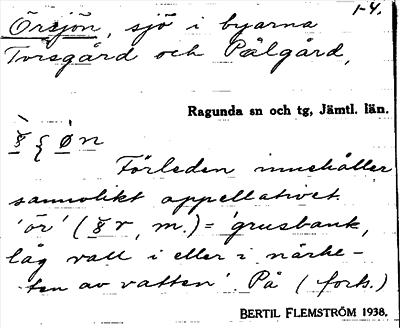 1-4.
Örsjön, sjö i byarna
Torsgård och Pålgård,
Ragunda sn och tg, Jämtl. län.
Förleden innehåller
sannolikt appellativet
'ör' (r, m.) = 'grusbank,
låg vall i eller i närhe-
ten av vatten'. På (forts.)
BERTIL FLEMSTRÖM 1938.